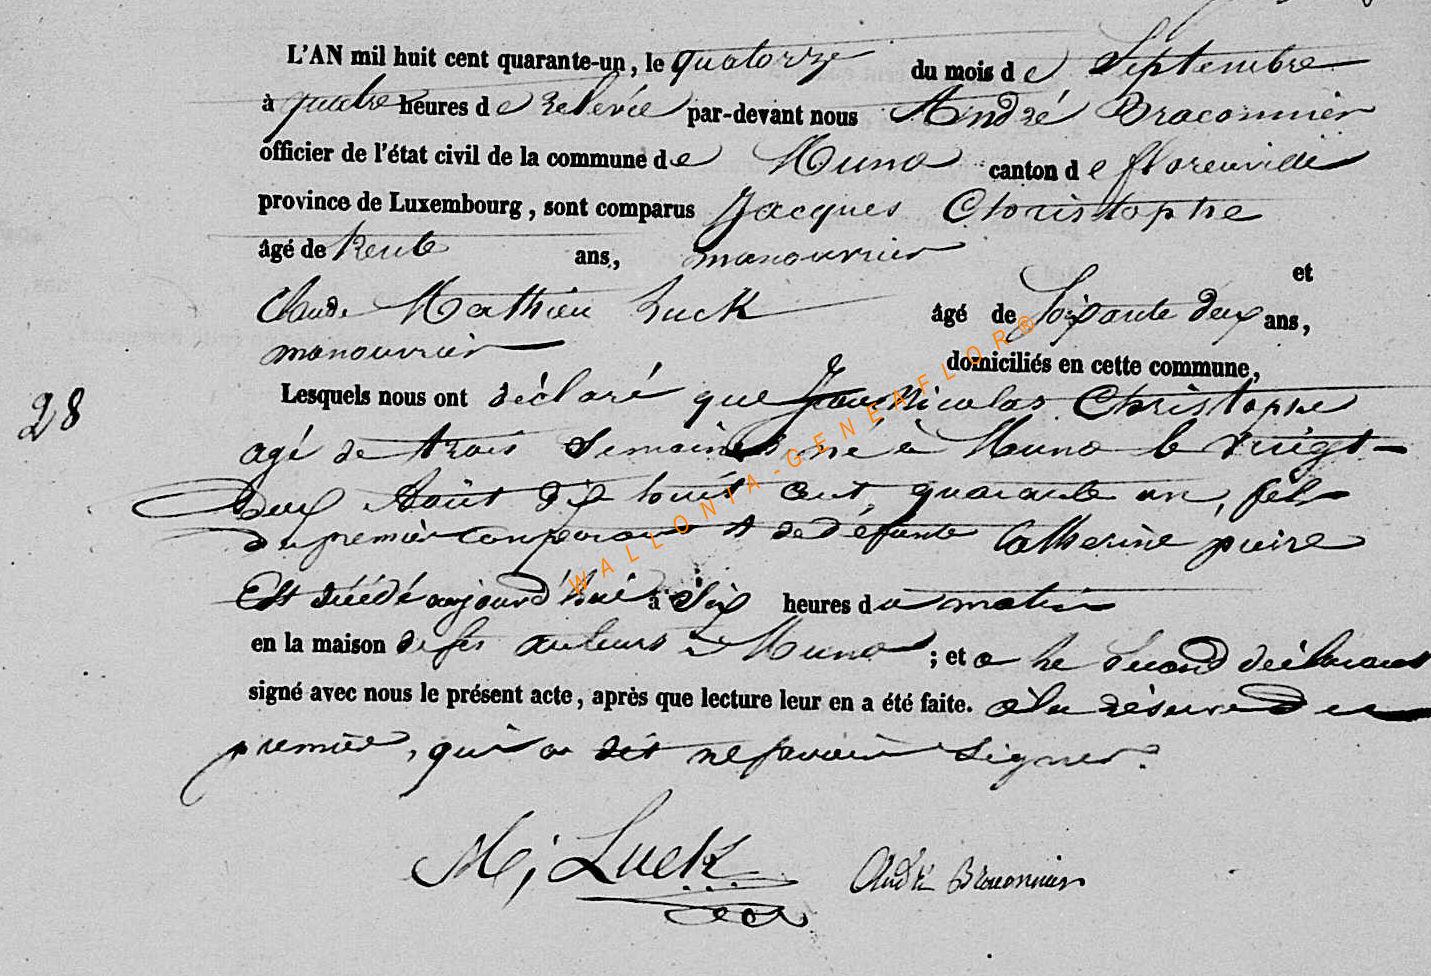 L'AN mil huit cent quarante-un, le quatorze du mois de Septembre
à quatre heures de relevée par-devant nous André Braconnier
officier de l'état civil de la commune de Muno canton de florenville
province de Luxembourg, sont comparus Jacques Christophe
âgé de trente ans, manouvrier et
Claude Mathieu Luck âgé de Soixante deux ans,
manouvrier domiciliés en cette commune,
28
Lesquels nous ont déclaré que Jean Nicolas Christophe
agé de trois Semaines né à Muno le vingt-
deux Août dix huit Cent quarante un, fils
du premier comparant et de défunte Catherine puire
Est décédé aujourd'hui à Six heures du matin
en la maison de ses auteurs à Muno; et a le Second déclarant
signé avec nous le présent acte, après que lecture leur en a été faite. à la réserve du
premier, qui a dit ne savoir Signer.
M, Luck André Braconnier
WALLONIA-GENEAFLOR®